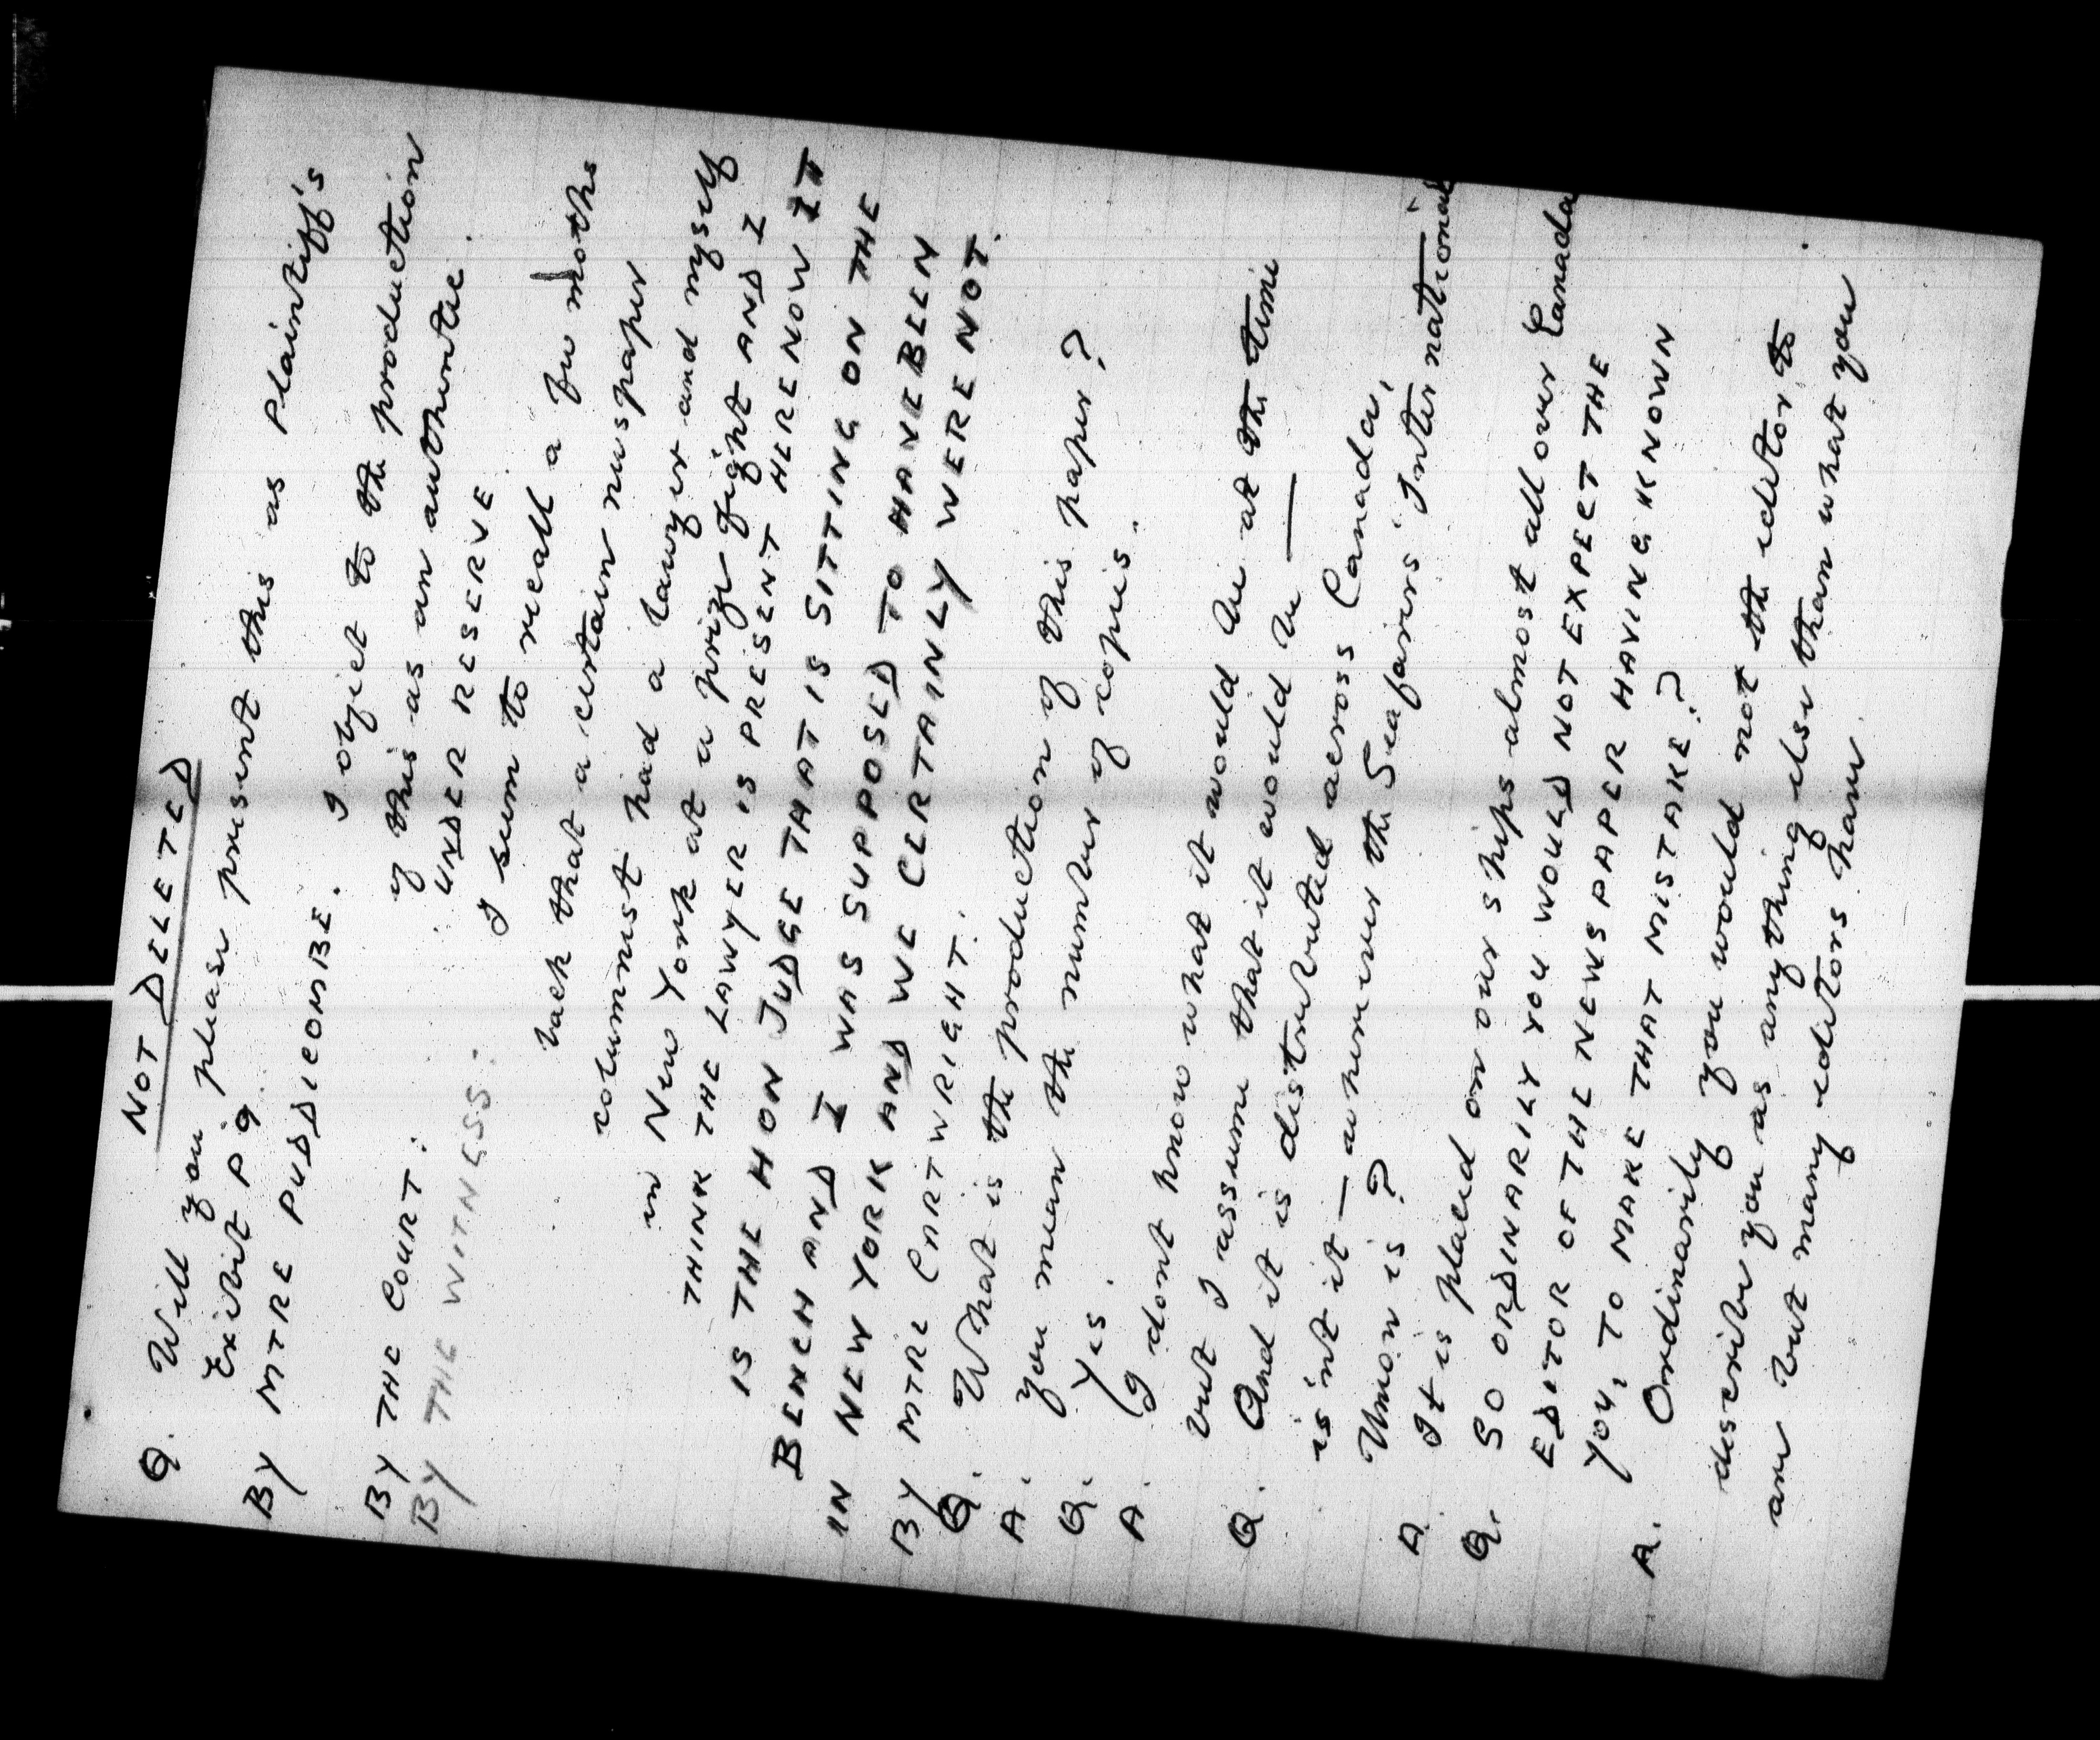 NOT DELETED
Q. Will you please present this as Plaintiff's
Exibit P 9.
BY MTRE PUDDICOMBE.
I object to the production
of this as an authentic.
BY THE COURT: UNDER RESERVE
BY THE WITNESS.
I seem to recall a few moths
back that a certain newspaper
columnist had a lawyer and myself
in New York at a prize fight AND I
THINK THE LAWYER IS PRESENT HERE NOW IT
IS THE HON JUDGE THAT IS SITTING ON THE
BENCH AND I WAS SUPPOSED TO HAVE BEEN
IN NEW YORK AND WE CERTAINLY WERE NOT.
BY MTRE CARTWRIGHT.
Q. What is the production of this paper?
A. you mean the number of copies.
Q. Yes.
A. I dont know what it would be at the time
but I assume that it would be —
Q. And it is distributed across Canada,
is'nt it — wherever the Seafarers' International
Union is?
A. It is placed on our ships almost all over Canada
Q. SO ORDINARILY YOU WOULD NOT EXPECT THE
EDITOR OF THE NEWSPAPER HAVING KNOWN
YOU, TO MAKE THAT MISTAKE?
A. Ordinarily you would not the editor to
describe you as anything else than what you
are but many editors have